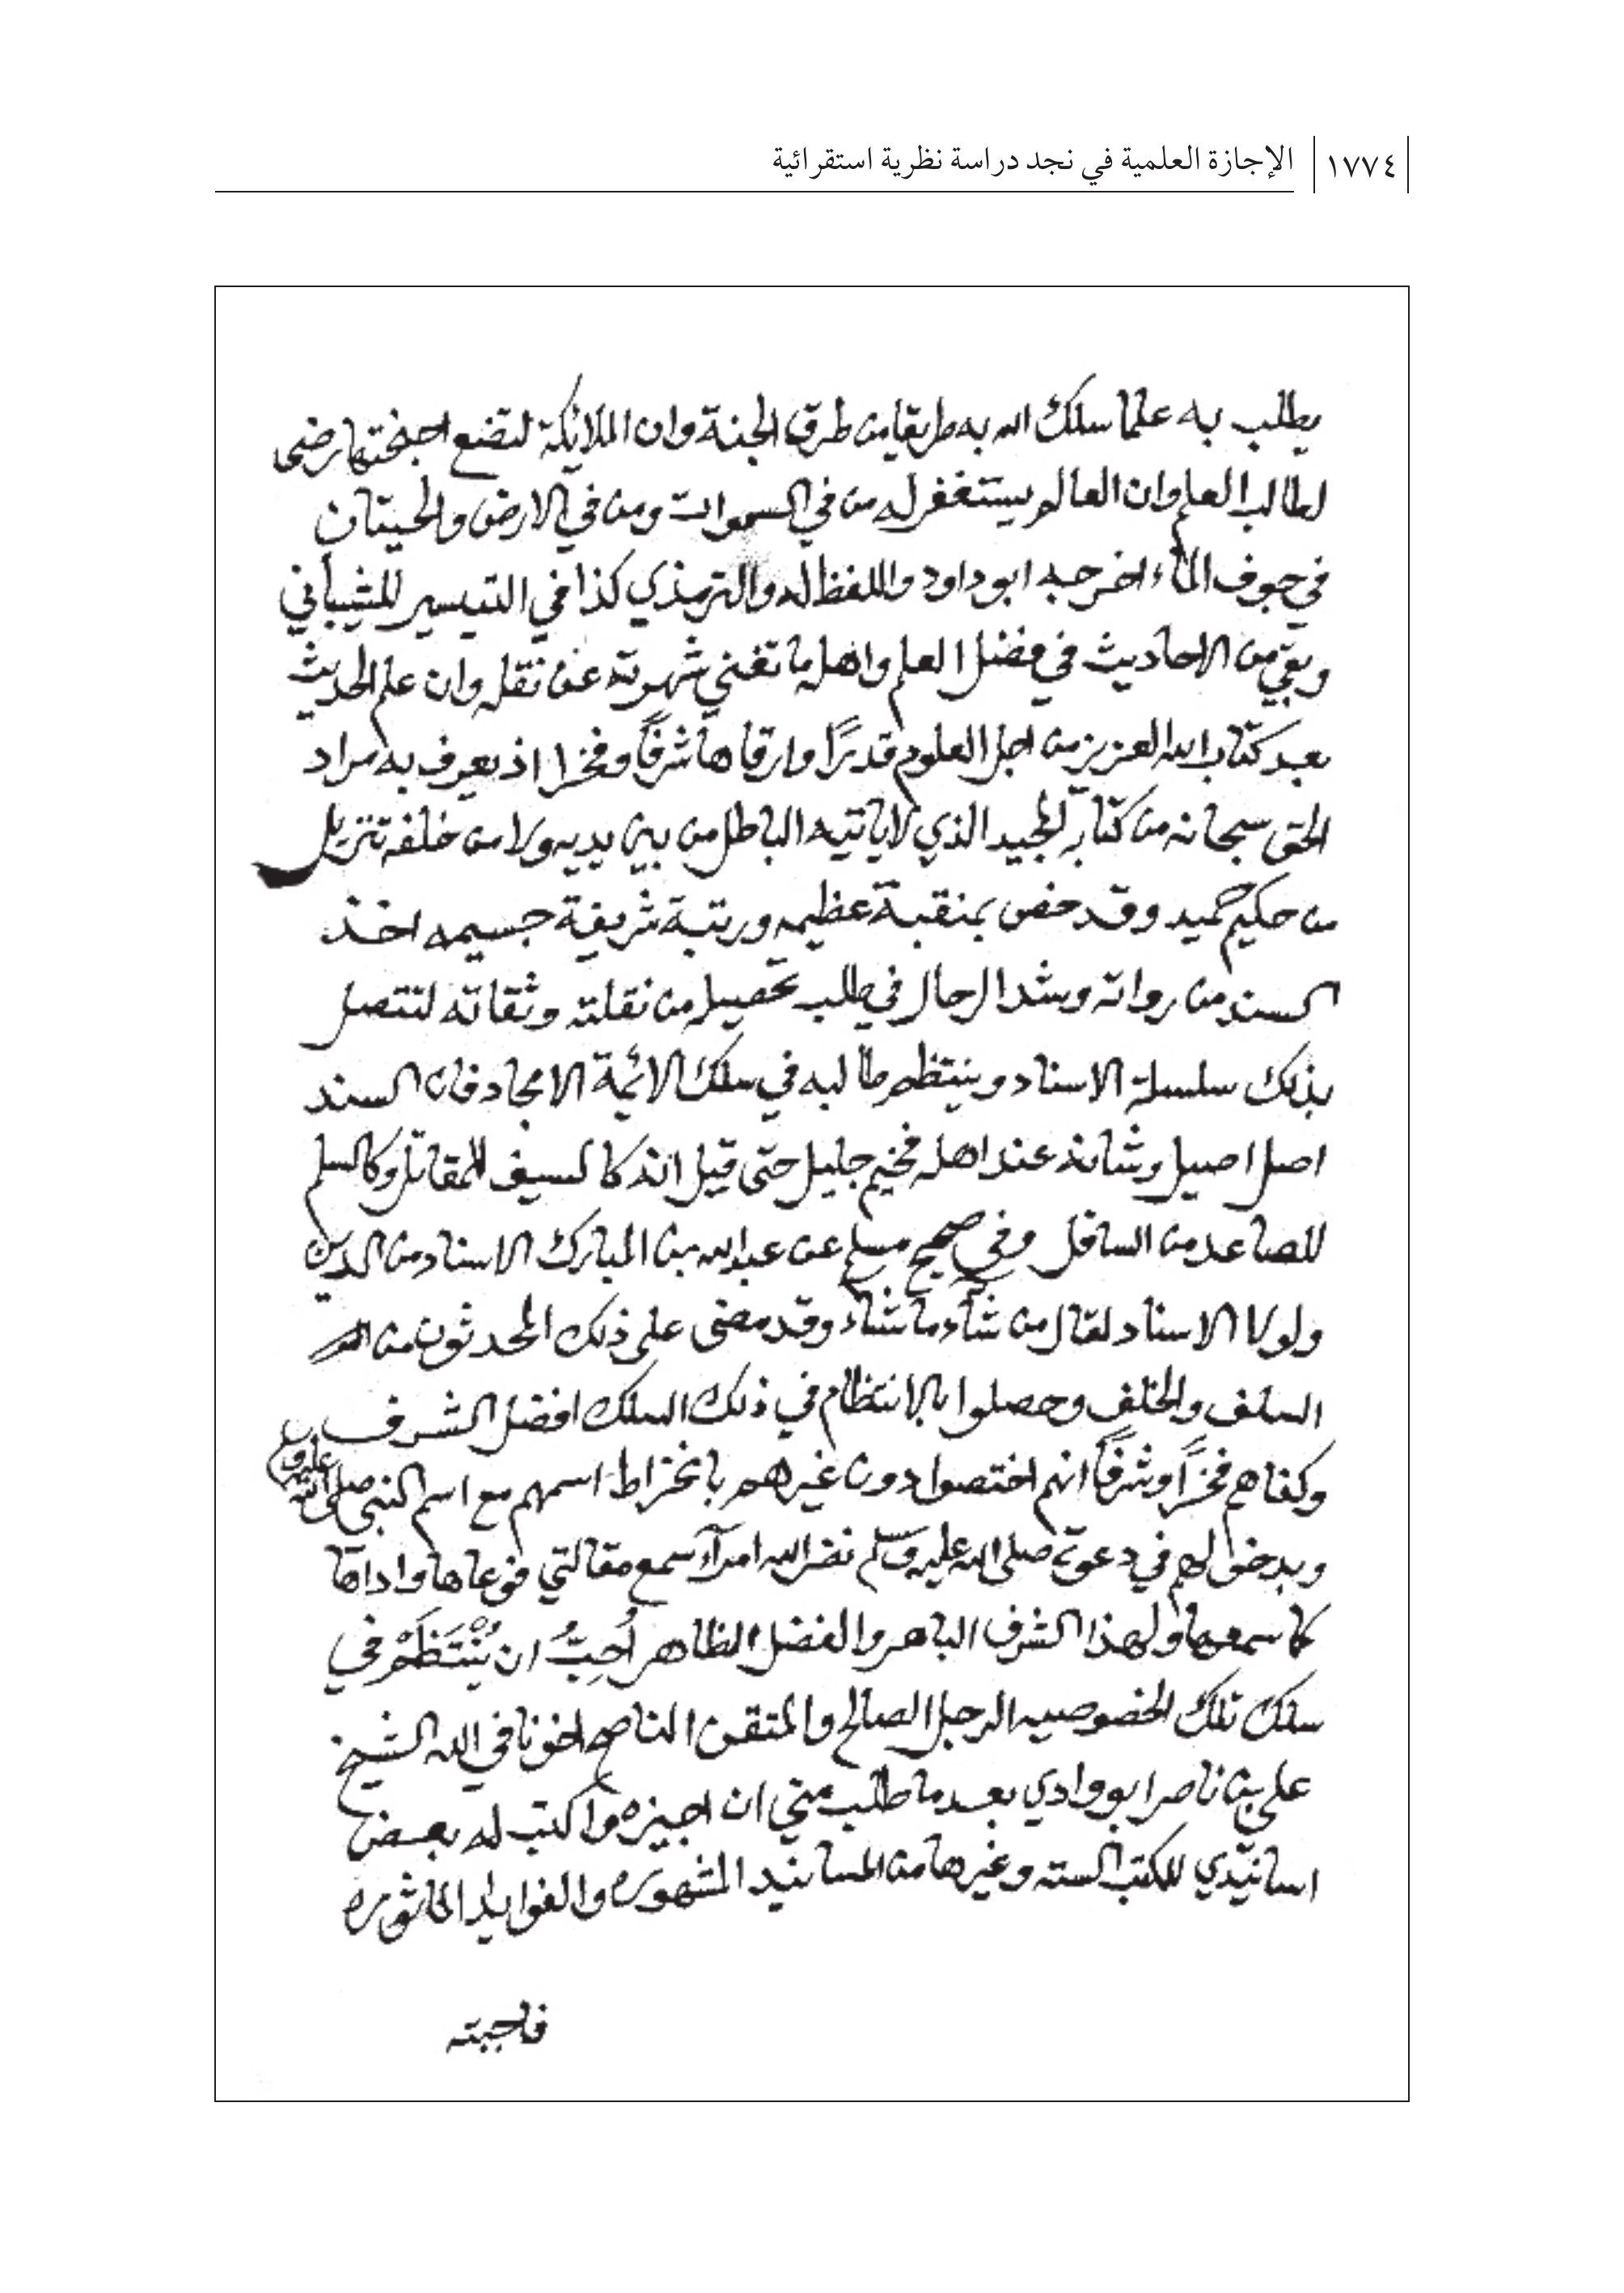 ١٧٧٤ الإجازة العلمية في نجد دراسة نظرية استقرائية
يطلب به علما سلك الله به طريقا من طرق الجنة وان الملائكة لتضع اجنحتها رضى
لطالب العلم وان العالم يستغفر له من في السموات ومن في الارض والحيتان
في جوف الماء اخرجه ابوداود واللفظ له والترمذي كذا في التيسير للشيباني
وبقي من الاحاديث في فضل العلم واهله ما تغني شهرته عن نقله وان علم الحديث
بعد كتاب الله العزيز من اجل العلوم قدرًا وارقاها شرفًا وفخرا اذ يعرف به مراد
الحق سبحانه من كتابه المجيد الذي لا ياتيه الباطل من بين يديه ولا من خلفه تنزيل
من حكيم حميد وقد خص بمنقبة عظيمه ورتبة شريفة جسيمه اخذ
السند من رواته وشد الرحال في طلب تحصيله من نقلته وثقاته لتتصل
بذلك سلسلة الاسناد وينتظم طالبه في سلك الائمة الامجاد فان السند
اصل اصيل وشانه عند اهله فخيم جليل حتى قيل انه كالسيف للمقاتل وكالسلم
للصاعد من السافل وفي صحيح مسلم عن عبدالله بن المبارك الاسناد من الدين
ولولا الاسناد لقال من شاء ما شاء وقد مضى على ذلك المحدثون من
السلف والخلف وحصلوا بالانتظام في ذلك السلك افضل الشرف
وكفاهم فخرًا وشرفًا انهم اختصوا دون غيرهم بانخراط اسمهم مع اسم النبي صلى الله عليه وسلم
وبدخولهم في دعوته صلى الله عليه وسلم نضر الله امرأ سمع مقالتي فوعاها واداها
كما سمعها ولهذا الشرف الباهر والفضل الظاهر أحِبّ ان يُنْتَظَمْ في
سلك تلك الخصوصيه الرجل الصالح والمتقن الناصح اخونا في الله الشيخ
علي بن ناصر ابو وادي بعد ما طلب مني ان اجيزه واكتب له بعض
اسانيدي للكتب السته وغيرها من المسانيد المشهوره والفوايد الماثوره
فاجبته